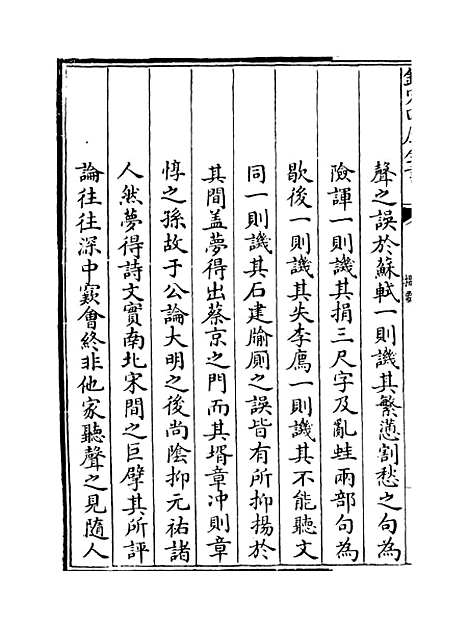 欽定四庫全書
提要
聲之誤於蘇軾一則譏其繁懣割愁之句為
險諢一則譏其捐三尺字及亂蛙兩部句為
歇後一則譏其失李廌一則譏其不能聽文
同一則譏其石建牏厠之誤皆有所抑揚於
其間盖夢得出蔡京之門而其壻章冲則章
惇之孫故于公論大明之後尚陰抑元祐諸
人然夢得詩文實南北宋間之巨擘其所評
論往往深中窽會終非他家聽聲之見隨人